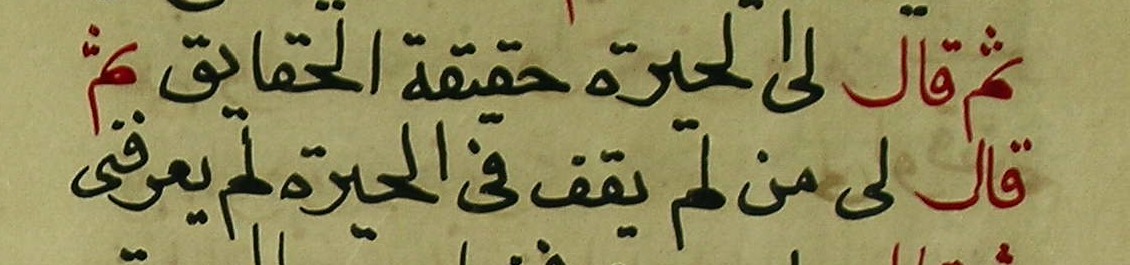 ثم قال لى الحيرة حقيقة الحقايق ثم
قال لى من لم يقف فى الحيرة لم يعرفنى